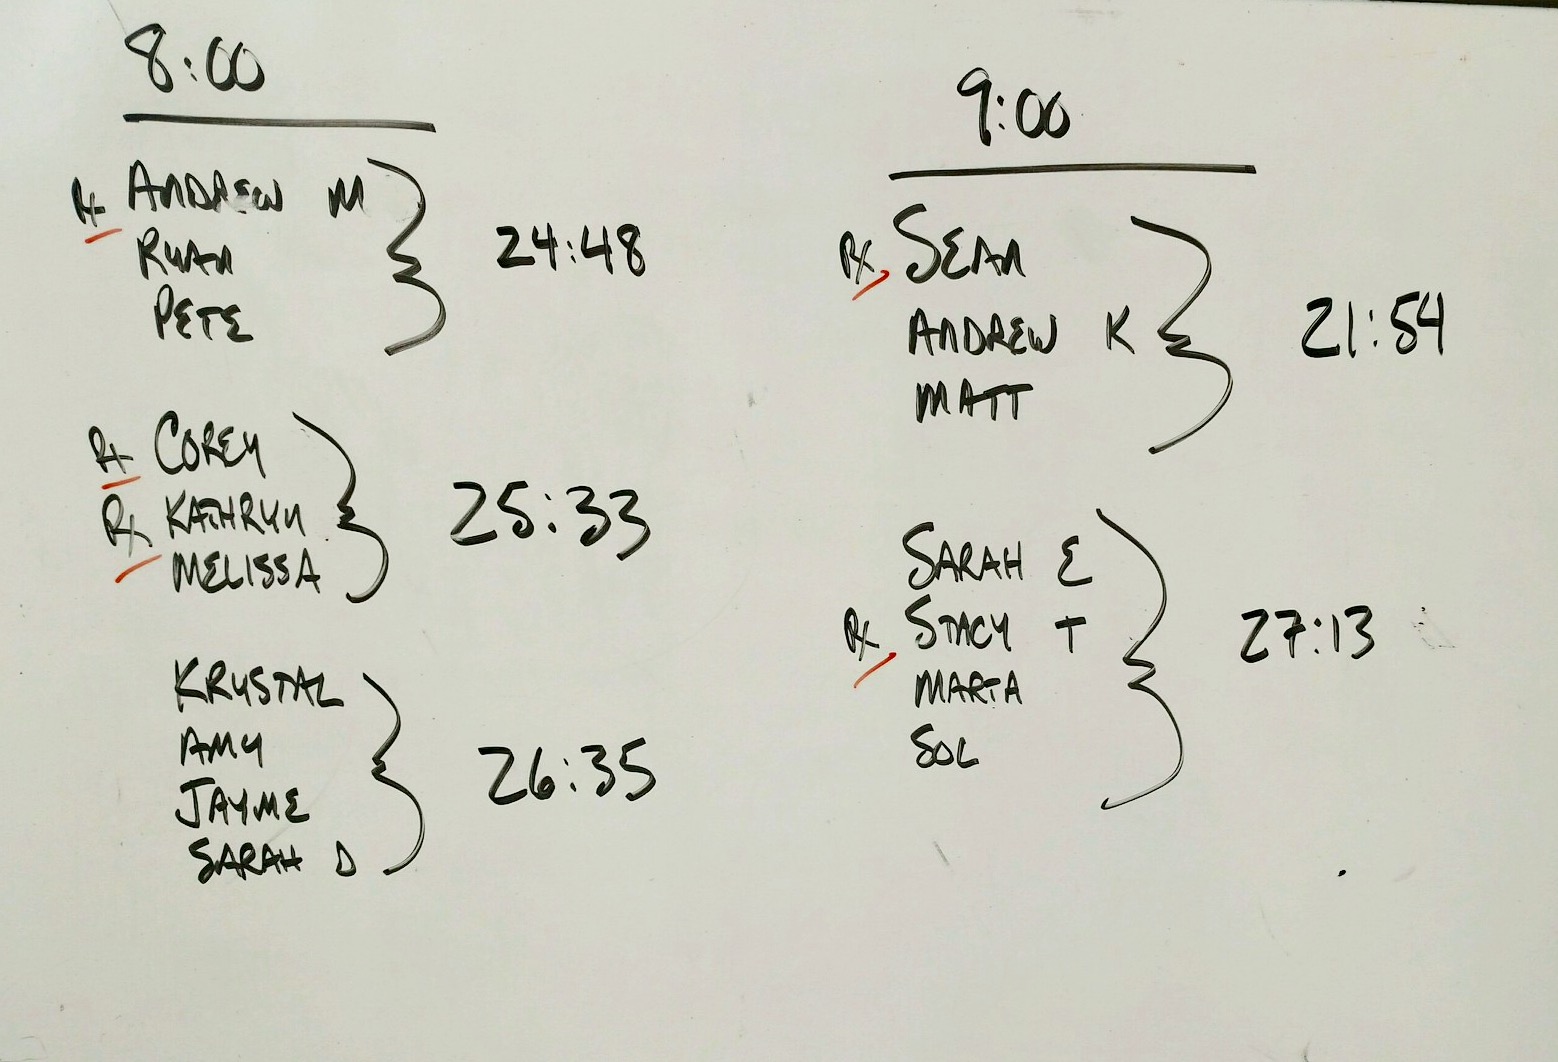 8:00
Rx ANDREW M
RYAN
PETE
24:48
Rx COREY
Rx KATHRYN
MELISSA
25:33
KRYSTAL
AMY
JAYME
SARAH D
26:35
9:00
Rx SEAN
ANDREW K
MATT
21:54
SARAH E
Rx STACY T
MARTA
SOL
27:13